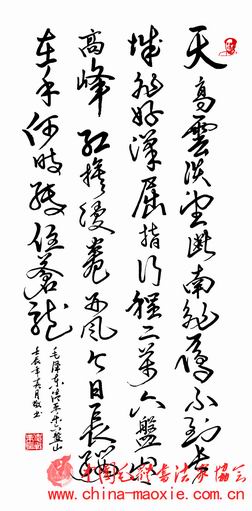 天高雲淡望断南飛雁不到長
城非好漢屈指行程二萬六盤山上
高峰红旗漫卷西风今日長缨
在手何時缚住蒼龍
毛澤東清平樂六盤山
壬辰年月敬书
中国毛体书法家协会
www.china-maoxie.com.cn